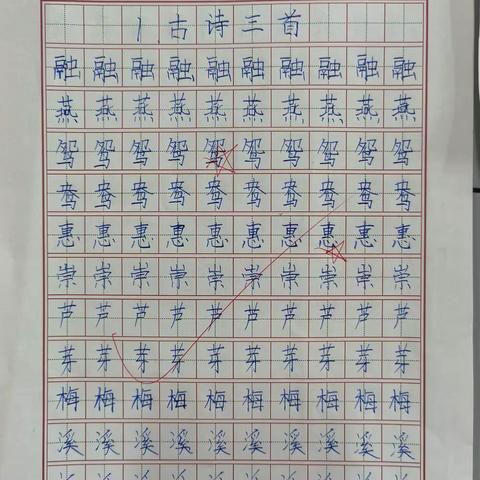 1.古诗三首
融融融融融融融融融融
燕燕燕燕燕燕燕燕燕燕
鸳鸳鸳鸳鸳鸳鸳鸳鸳鸳
鸯鸯鸯鸯鸯鸯鸯鸯鸯鸯
惠惠惠惠惠惠惠惠惠惠
崇崇崇崇崇崇崇崇崇崇
芦芦芦芦芦芦芦芦芦芦
芽芽芽芽芽芽芽芽芽芽
梅梅梅梅梅梅梅梅梅梅
溪溪溪溪溪溪溪溪溪溪